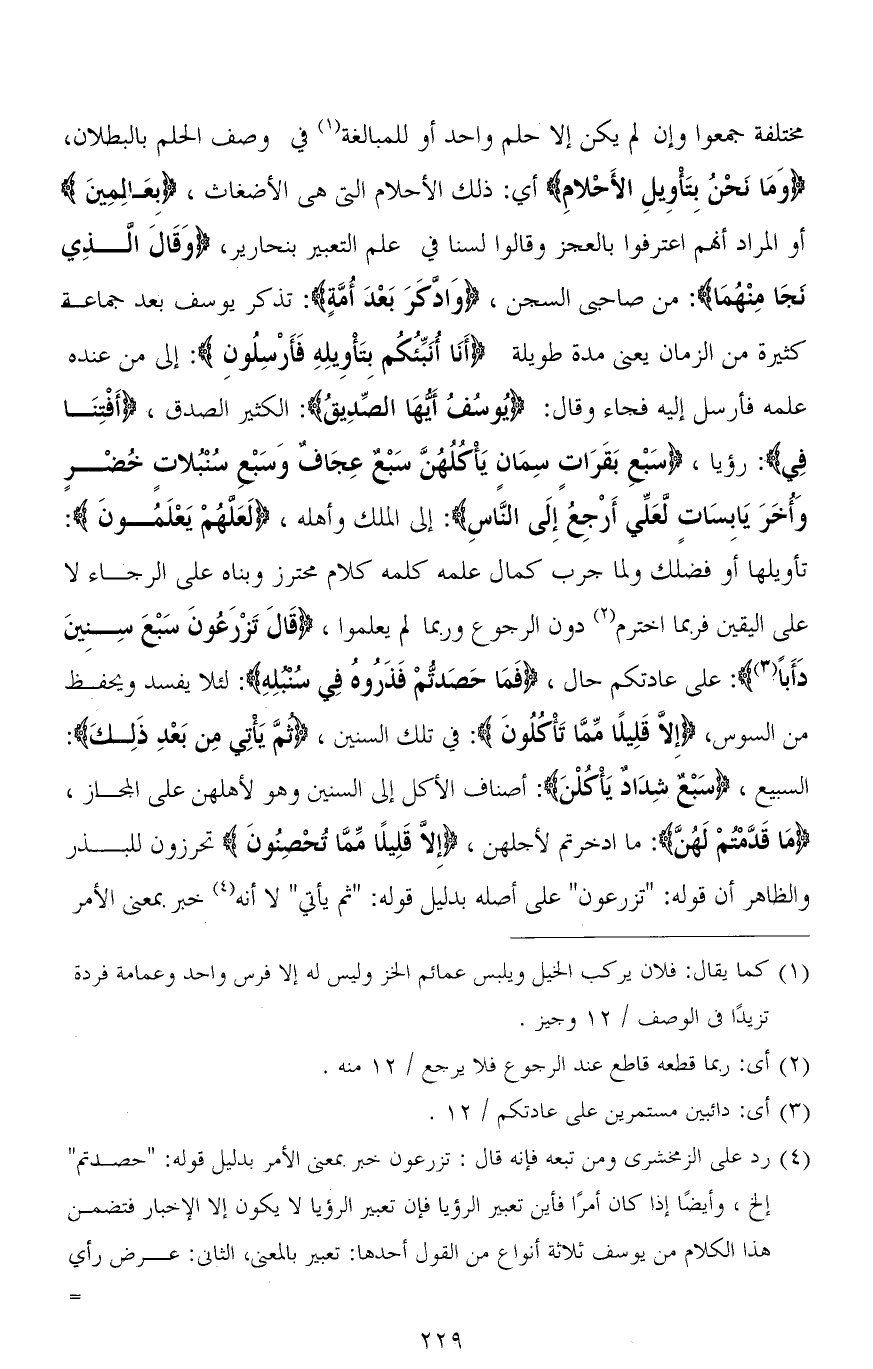 مختلفة جمعوا وإن لم يكن إلا حلم واحد أو للمبالغة(١) في وصف الحلم بالبطلان،
﴿وَمَا نَحْنُ بِتَأْوِيلِ الأَحْلامِ﴾ أي: ذلك الأحلام التى هى الأضغاث ، ﴿بِعَالِمِينَ ﴾
أو المراد أنهم اعترفوا بالعجز وقالوا لسنا في علم التعبير بنحارير، ﴿وَقَالَ الَّــذِي
نَجَا مِنْهُمَا﴾: من صاحبى السجن ، ﴿وَادَّكَرَ بَعْدَ أُمَّةٍ﴾: تذكر يوسف بعد جماعـة
كثيرة من الزمان يعنى مدة طويلة ﴿أَنَا أُنَبِّئُكُم بِتَأْوِيلِهِ فَأَرْسِلُونِ ﴾: إلى من عنده
علمه فأرسل إليه فجاء وقال: ﴿يُوسُفُ أَيُّهَا الصِّدِّيقُ﴾: الكثير الصدق ، ﴿أَفْتِنَــا
فِي﴾: رؤيا ، ﴿سَبْعِ بَقَرَاتٍ سِمَانٍ يَأْكُلُهُنَّ سَبْعٌ عِجَافٌ وَسَبْعِ سُنْبُلاتٍ خُضْــرٍ
وَأُخَرَ يَابِسَاتٍ لَّعَلِّي أَرْجِعُ إِلَى النَّاسِ﴾: إلى الملك وأهله ، ﴿لَعَلَّهُمْ يَعْلَمُــونَ ﴾:
تأويلها أو فضلك ولما جرب كمال علمه كلمه كلام محترز وبناه على الرجــاء لا
على اليقين فربما اخترم(٢) دون الرجوع وربما لم يعلموا ، ﴿قَالَ تَزْرَعُونَ سَبْعَ سِــنِينَ
دَأَباً(٣)﴾: على عادتكم حال ، ﴿فَمَا حَصَدتُّمْ فَذَرُوهُ فِي سُنْبُلِهِ﴾: لئلا يفسد ويحفـظ
من السوس، ﴿إِلاَّ قَلِيلًا مِّمَّا تَأْكُلُونَ ﴾: في تلك السنين ، ﴿ثُمَّ يَأْتِي مِن بَعْدِ ذَلِـكَ﴾:
السبيع ، ﴿سَبْعٌ شِدَادٌ يَأْكُلْنَ﴾: أصناف الأكل إلى السنين وهو لأهلهن على المجاز ،
﴿مَا قَدَّمْتُمْ لَهُنَّ﴾: ما ادخرتم لأجلهن ، ﴿إِلاَّ قَلِيلًا مِّمَّا تُحْصِنُونَ ﴾ تحرزون للبــذر
والظاهر أن قوله: "تزرعون" على أصله بدليل قوله: "ثم يأتي" لا أنه(٤) خبر بمعنى الأمر
(١) كما يقال: فلان يركب الخيل ويلبس عمائم الخز وليس له إلا فرس واحد وعمامة فردة
تزيدًا فى الوصف / ١٢ وجيز .
(٢) أى: ربما قطعه قاطع عند الرجوع فلا يرجع / ١٢ منه .
(٣) أى: دائبين مستمرين على عادتكم / ١٢ .
(٤) رد على الزمخشرى ومن تبعه فإنه قال : تزرعون خبر بمعنى الأمر بدليل قوله: "حصـدتم"
إلخ ، وأيضًا إذا كان أمرًا فأين تعبير الرؤيا فإن تعبير الرؤيا لا يكون إلا الإخبار فتضمـن
هذا الكلام من يوسف ثلاثة أنواع من القول أحدها: تعبير بالمعنى، الثانى: عــرض رأي
=
٢٢٩